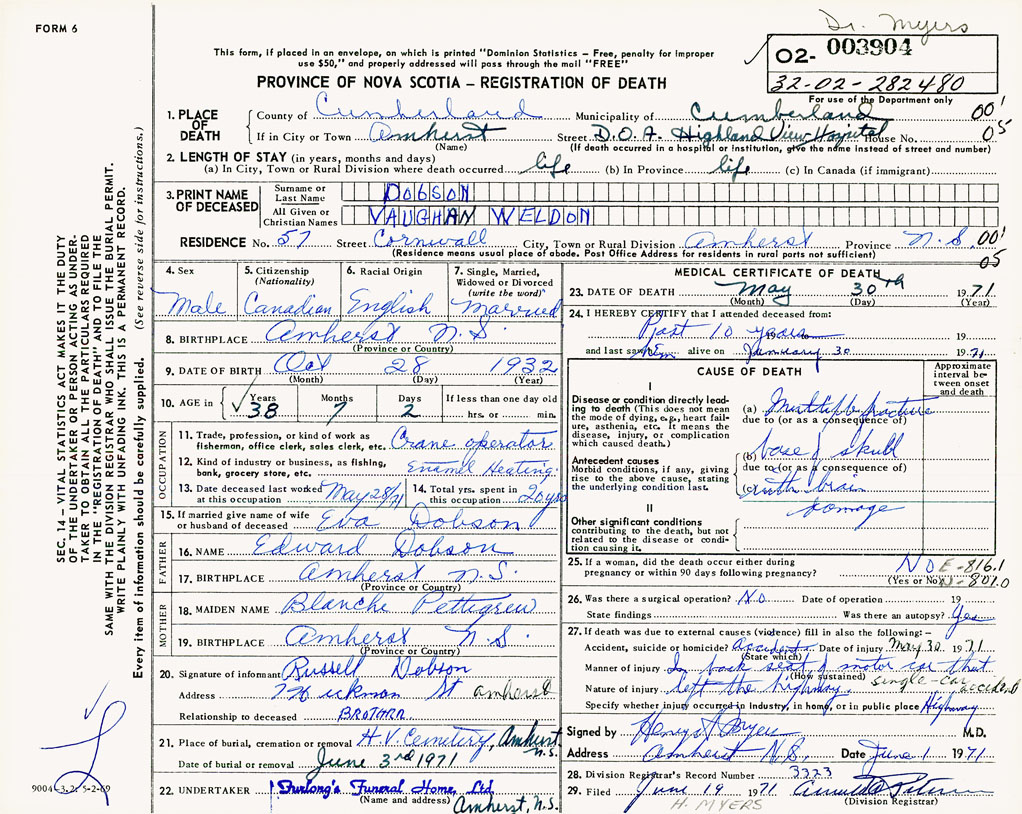 Dr. Myers
FORM 6
02- 003904
32-02-282480
For use of the Department only
This form, if placed in an envelope, on which is printed "Dominion Statistics – Free, penalty for improper
use $50," and properly addressed will pass through the mail "FREE"
PROVINCE OF NOVA SCOTIA – REGISTRATION OF DEATH
1. PLACE OF DEATH
County of Cumberland Municipality of Cumberland 00'
If in City or Town Amherst Street D.O.A. Highland View Hospital House No. 05
(Name) (If death occurred in a hospital or institution, give the name instead of street and number)
2. LENGTH OF STAY (in years, months and days)
(a) In City, Town or Rural Division where death occurred life (b) In Province life (c) In Canada (if immigrant)
3. PRINT NAME OF DECEASED
Surname or Last Name DOBSON
All Given or Christian Names VAUGHAN WELDON
RESIDENCE No. 57 Street Cornwall City, Town or Rural Division Amherst Province N.S 00'
(Residence means usual place of abode. Post Office Address for residents in rural parts not sufficient) 05
4. Sex Male
5. Citizenship (Nationality) Canadian
6. Racial Origin English
7. Single, Married, Widowed or Divorced (write the word) Married
8. BIRTHPLACE Amherst N.S.
(Province or Country)
9. DATE OF BIRTH Oct 28 1932
(Month) (Day) (Year)
10. AGE in Years 38 Months 7 Days 2 If less than one day old hrs. or min.
OCCUPATION
11. Trade, profession, or kind of work as fisherman, office clerk, sales clerk, etc. Crane operator
12. Kind of industry or business, as fishing, bank, grocery store, etc. Enamel Heating
13. Date deceased last worked at this occupation May 28/71
14. Total yrs. spent in this occupation 20 yrs
15. If married give name of wife or husband of deceased Eva Dobson
FATHER
16. NAME Edward Dobson
17. BIRTHPLACE Amherst N.S.
(Province or Country)
MOTHER
18. MAIDEN NAME Blanche Pettigrew
19. BIRTHPLACE Amherst N.S.
(Province or Country)
20. Signature of informant Russell Dobson
Address St Amherst
Relationship to deceased BROTHER
21. Place of burial, cremation or removal H.V. Cemetery, Amherst N.S.
Date of burial or removal June 3rd 1971
22. UNDERTAKER Furlong's Funeral Home, Ltd
(Name and address) Amherst, N.S.
MEDICAL CERTIFICATE OF DEATH
23. DATE OF DEATH May 30th 1971
(Month) (Day) (Year)
24. I HEREBY CERTIFY that I attended deceased from:
Past 10 years 19
and last saw him alive on January 30 1971
CAUSE OF DEATH
Approximate interval between onset and death
I
Disease or condition directly leading to death (This does not mean the mode of dying, e.g., heart failure, asthenia, etc. It means the disease, injury, or complication which caused death.)
(a) Multiple fracture
due to (or as a consequence of)
Antecedent causes
Morbid conditions, if any, giving rise to the above cause, stating the underlying condition last.
(b) base of skull
due to (or as a consequence of)
(c) with brain damage
II
Other significant conditions
contributing to the death, but not related to the disease or condition causing it.
25. If a woman, did the death occur either during pregnancy or within 90 days following pregnancy? NO E-816.1
(Yes or No) N-801.0
26. Was there a surgical operation? No Date of operation 19
State findings Was there an autopsy? Yes
27. If death was due to external causes (violence) fill in also the following: –
Accident, suicide or homicide? Accident Date of injury May 30 1971
(State which)
Manner of injury In back seat of motor car that
(How sustained) single-car accident
Nature of injury left the highway.
Specify whether injury occurred in industry, in home, or in public place Highway
Signed by Henry Myers M.D.
Address Amherst N.S. Date June 1 1971
28. Division Registrar's Record Number 3323
29. Filed June 19 1971
(Division Registrar)
H. MYERS
SEC. 14 – VITAL STATISTICS ACT MAKES IT THE DUTY
OF THE UNDERTAKER OR PERSON ACTING AS UNDER-
TAKER TO OBTAIN ALL THE PARTICULARS REQUIRED
IN THE "REGISTRATION OF DEATH" AND TO FILE THE
SAME WITH THE DIVISION REGISTRAR WHO SHALL ISSUE THE BURIAL PERMIT.
WRITE PLAINLY WITH UNFADING INK. THIS IS A PERMANENT RECORD.
Every item of information should be carefully supplied. (See reverse side for instructions.)